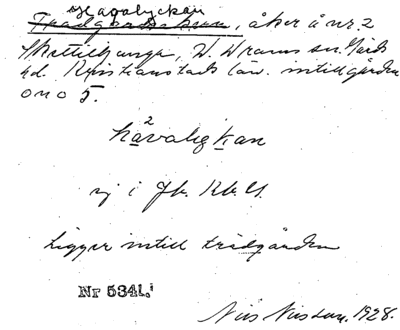 Havalyckan
Trädgårdslund, åker å nr. 2
Skättilljunga, V. Vrams sn. Gärds
hd. Kristianstads län. intill gården
o no 5.
håvalɩkan
ej i Jb.
Ligger intill trädgården
Nr 5341.
Nils Nilsson. 1928.